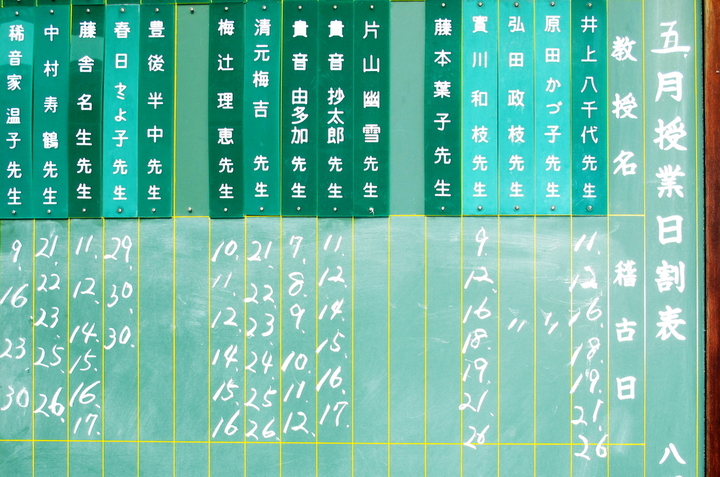 五月授業日割表
八
教授名
稽古日
井上八千代先生
11. 12. 16. 18. 19. 21. 26
原田かづ子先生
〃
弘田政枝先生
〃
實川和枝先生
9. 12. 16. 18. 19. 21. 26
藤本葉子先生
片山幽雪先生
貴音抄太郎先生
11. 12. 14. 15. 16. 17.
貴音由多加先生
7. 8. 9. 10. 11. 12.
清元梅吉先生
21. 22. 23. 24. 25. 26.
梅辻理恵先生
10. 11. 12. 14. 15. 16
豊後半中先生
春日とよ子先生
29. 30. 30.
藤舎名生先生
11. 12. 14. 15. 16. 17.
中村寿鶴先生
21. 22. 23. 25. 26.
稀音家温子先生
9. 16 23 30